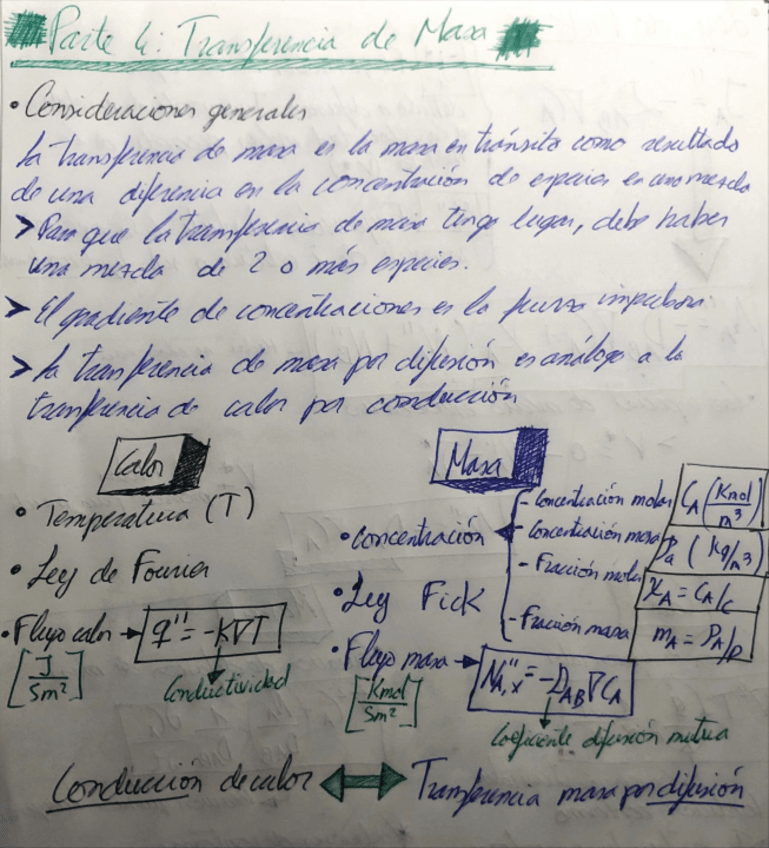 Parte 4: Transferencia de Masa
• Consideraciones generales
La transferencia de masa es la masa en tránsito como resultado
de una diferencia en la concentración de especies en una mezcla
> Para que la transferencia de masa tenga lugar, debe haber
una mezcla de 2 o más especies.
> El gradiente de concentraciones es la fuerza impulsora.
> La transferencia de masa por difusión es análoga a la
transferencia de calor por conducción
Calor
• Temperatura (T)
• Ley de Fourier
• Flujo calor → q'' = -K∇T
[J/Sm²]
Conductividad
Masa
• Concentración
- Concentración molar C_A (Kmol/m³)
- Concentración masa ρ_a (kg/m³)
- Fracción molar x_A = C_A/C
- Fracción masa m_A = ρ_A/ρ
• Ley Fick
• Flujo masa → N''_A,x = -D_AB ∇C_A
[Kmol/Sm²]
Coeficiente difusión mutua
Conducción de calor ↔ Transferencia masa por difusión